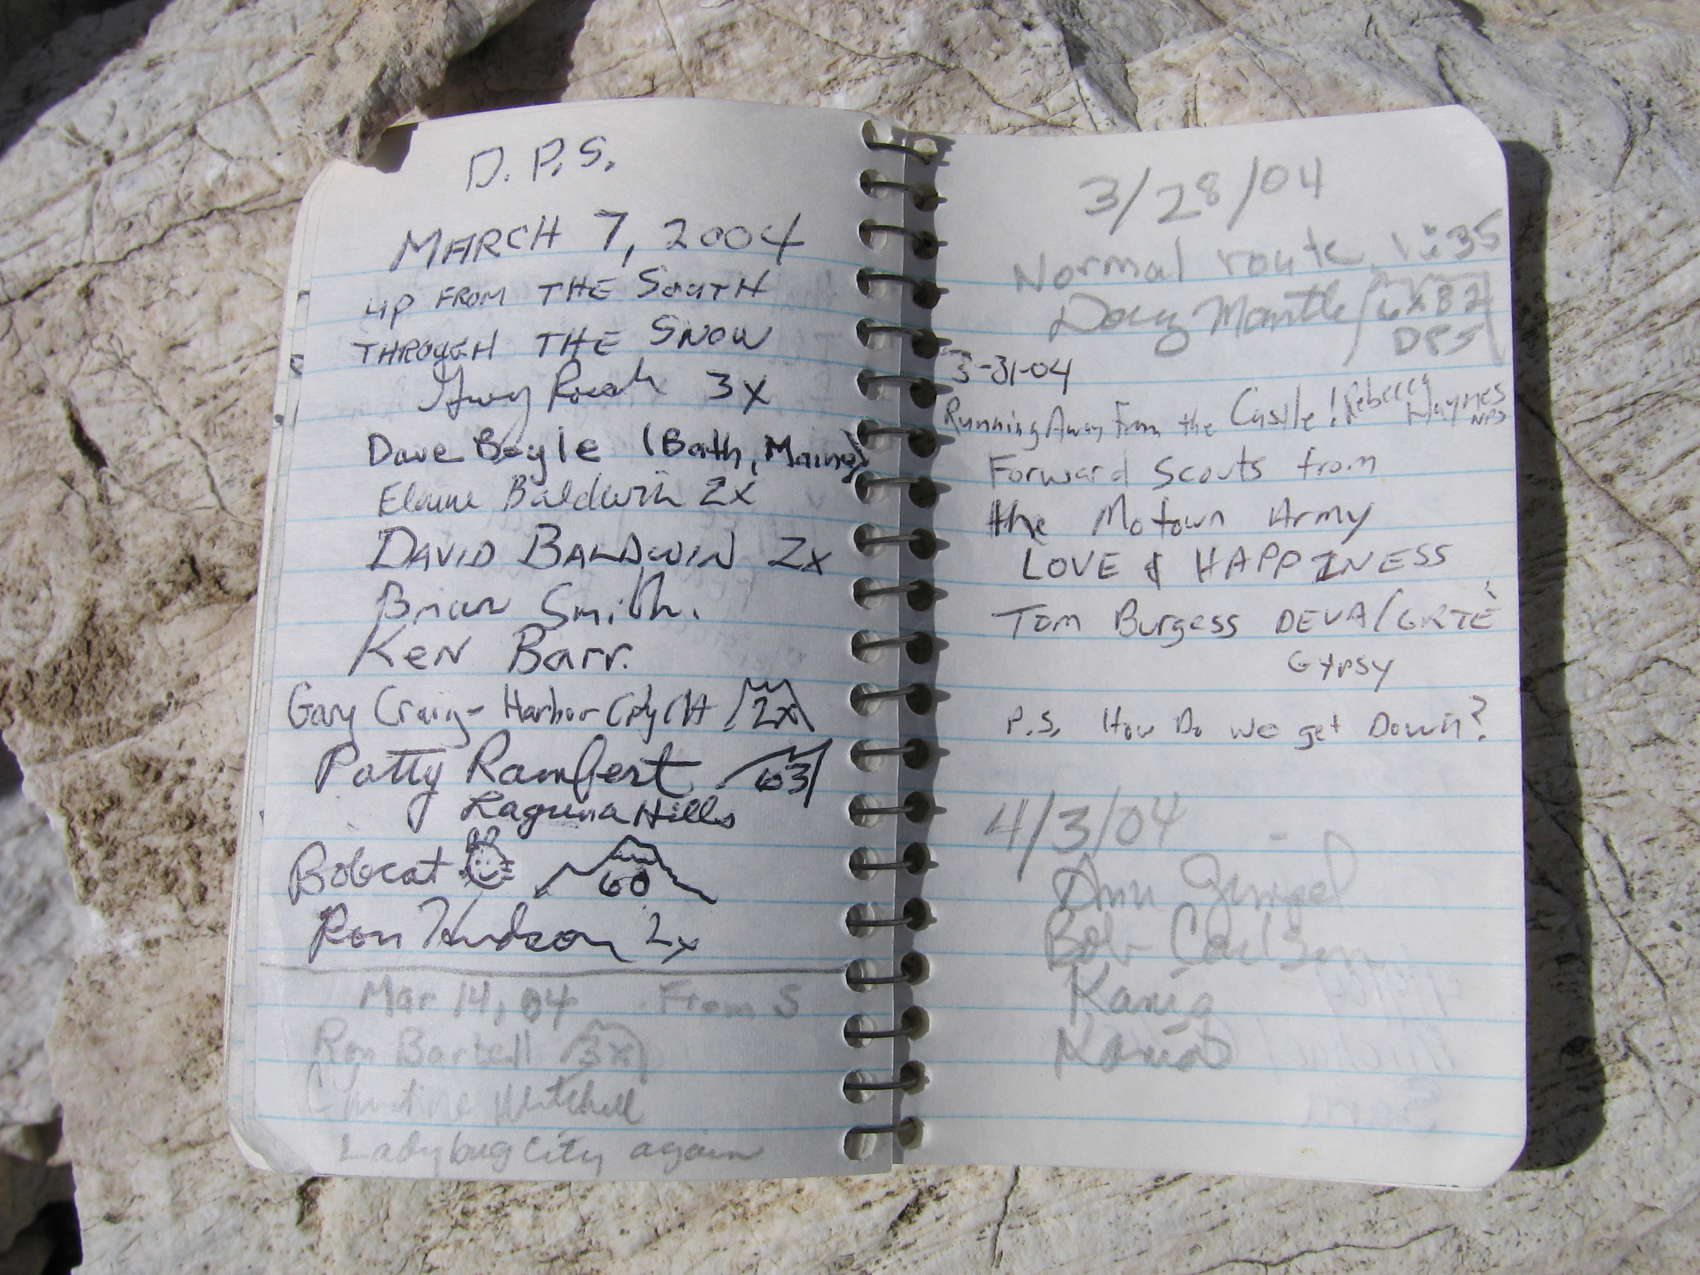 D. P. S.
MARCH 7, 2004
UP FROM THE SOUTH
THROUGH THE SNOW
3X
Dave Boyle (Bath, Maine)
Elaine Baldwin 2x
DAVID BALDWIN 2x
Brian Smith.
KEN Barr.
Gary Craig - Harbor City CA 2x
Patty Rambert 63
Laguna Hills
Bobcat 60
Ron Hudson 2x
Mar 14, 04 From S
Ron Bartell 3x
Christine Mitchell
Ladybug City again
3/28/04
Normal route 1:35
Doug Mantle 6x82
DPS
3-31-04
Running Away From the Castle! Rebecca Haynes
NPS
Forward Scouts from
the Motown Army
LOVE & HAPPINESS
Tom Burgess DEVA/GRTE
Gypsy
P.S. How Do we get Down?
4/3/04
Ann
Bob